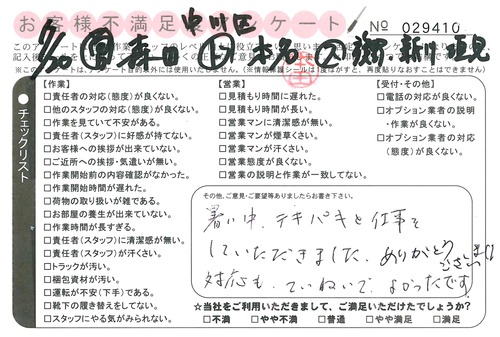 お客様不満足度アンケート
中川区
No 029410
【作業】
□責任者の対応(態度)が良くない。
□他のスタッフの対応(態度)が良くない。
□作業を見ていて不安がある。
□責任者(スタッフ)に好感が持てない。
□お客様への挨拶が出来ていない。
□ご近所への挨拶・気遣いが無い。
□作業開始前の内容確認がなかった。
□作業開始時間が遅れた。
□荷物の取り扱いが雑である。
□お部屋の養生が出来ていない。
□作業時間が長すぎる。
□責任者(スタッフ)に清潔感が無い。
□責任者(スタッフ)が汗くさい。
□トラックが汚い。
□梱包資材が汚い。
□運転が不安(下手)である。
□靴下の履き替えをしてない。
□スタッフにやる気がみられない。
【営業】
□見積もり時間に遅れた。
□見積もり時間が長い。
□営業マンに清潔感が無い。
□営業マンが煙草くさい。
□営業マンが汗くさい。
□営業態度が良くない。
□営業の説明と作業が一致してない。
【受付・その他】
□電話の対応が良くない。
□オプション業者の説明
・作業が良くない。
□オプション業者の対応
(態度)が良くない。
チェックリスト
その他、ご意見・ご要望等ありましたらお書き下さい。
暑い中、テキパキと仕事を
していただきました。ありがとうございました!!
対応も、ていねいで、よかったです。
☆当社をご利用いただきまして、ご満足いただけたでしょうか?
□不満 □やや不満 □普通 □やや満足 □満足